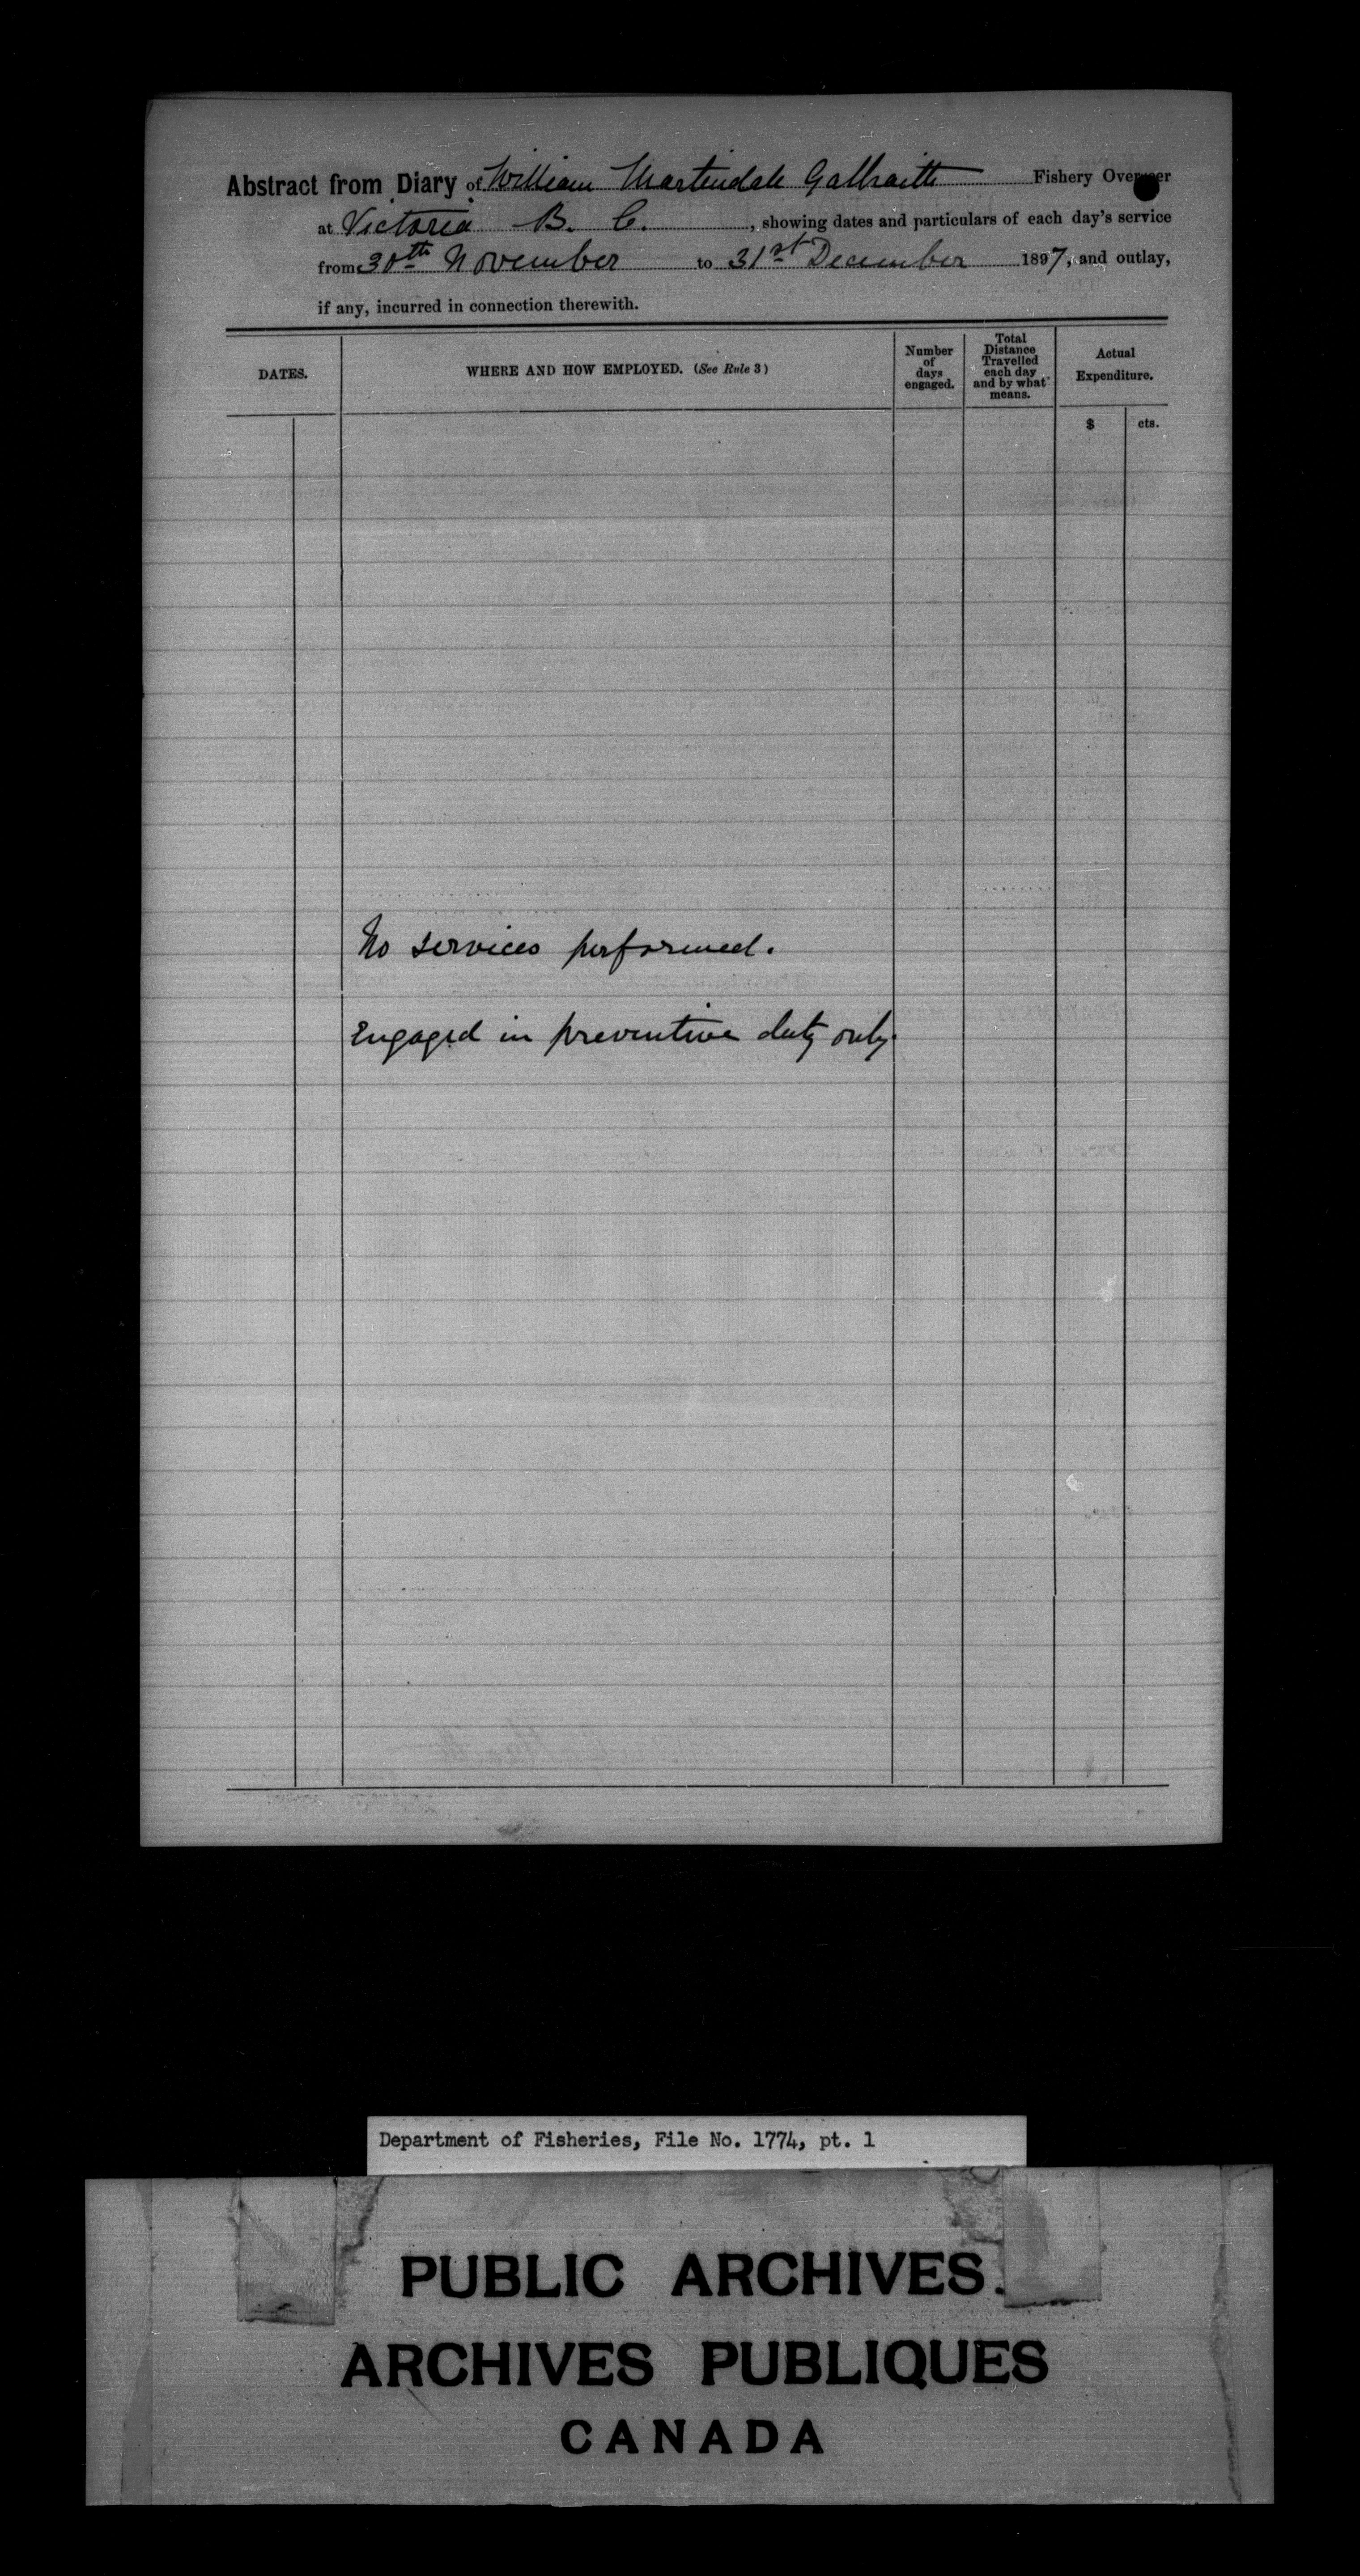 Abstract from Diary of William Martindale Galbraith Fishery Overseer
at Victoria B. C. , showing dates and particulars of each day's service
from 30th November to 31st December 1897, and outlay,
if any, incurred in connection therewith.
DATES.
WHERE AND HOW EMPLOYED. (See Rule 3)
Number
of
days
engaged.
Total
Distance
Travelled
each day
and by what
means.
Actual
Expenditure.
$ cts.
No services performed.
Engaged in preventive duty only.
Department of Fisheries, File No. 1774, pt. 1
PUBLIC ARCHIVES.
ARCHIVES PUBLIQUES
CANADA